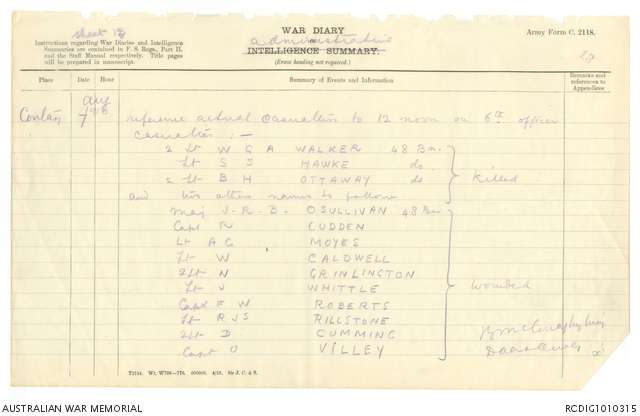 sheet 13
WAR DIARY
Army Form C. 2118.
administrative
or
INTELLIGENCE SUMMARY.
(Erase heading not required.)
Instructions regarding War Diaries and Intelligence
Summaries are contained in F. S. Regs., Part II.
and the Staff Manual respectively. Title pages
will be prepared in manuscript.
Place
Date
Hour
Summary of Events and Information
Remarks and
references to
Appendices
Aug
1916
Contay 7 reference actual casualties to 12 noon on 6th officer
casualties :—
2 Lt W G A WALKER 48 Bn.
Lt S S HAWKE do
2 Lt B H OTTAWAY do
killed
and two others names to follow
Maj J. R. B. OSULLIVAN 48 Bn
Capt R CUDDEN
Lt A G MOYES
Lt W CALDWELL
2Lt N GRINLINGTON
Lt J WHITTLE
wounded
Capt F W ROBERTS
Lt R J S RILLSTONE
2Lt D CUMMING
Capt O VILLEY
T2134. Wt. W708—776. 500000. 4/15. Sir J. C. & S.
AUSTRALIAN WAR MEMORIAL
RCDIG1010315